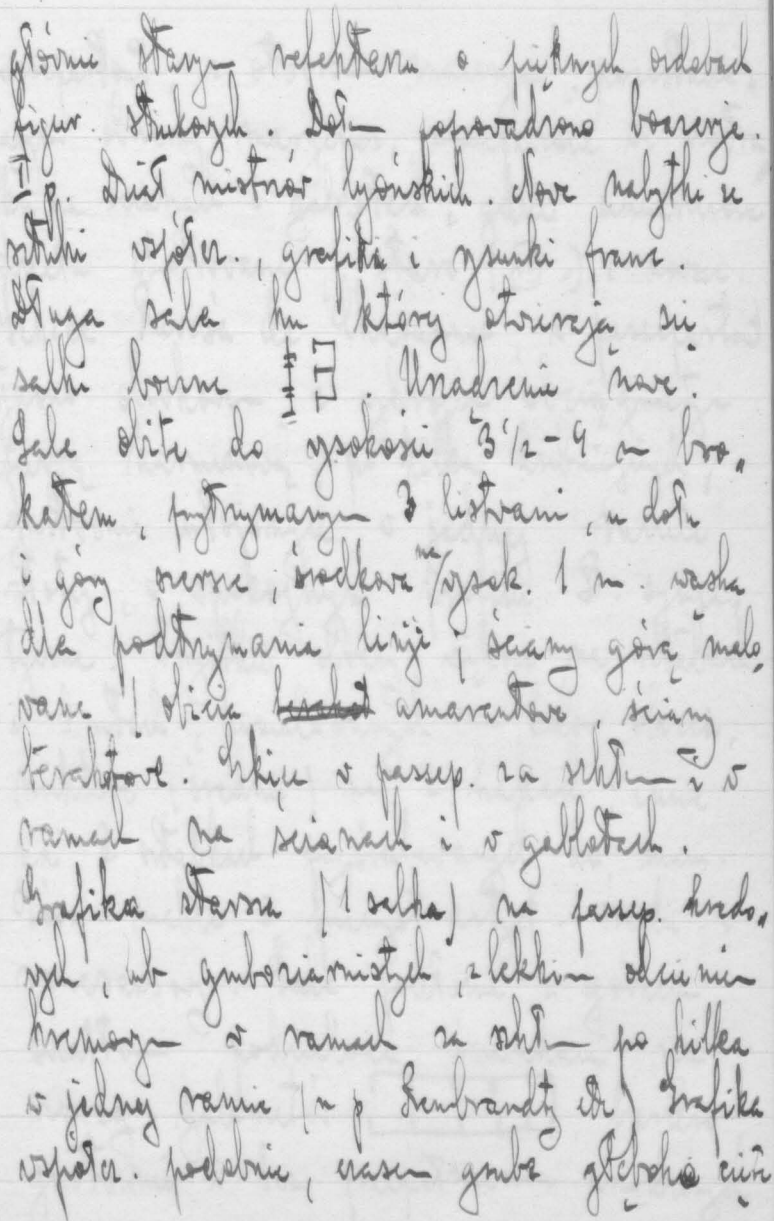 głównie starym refektarzu o pięknych ozdobach
figur. stiukowych. Dołem poprowadzono boazerje.
II p. Dział mistrzów lyońskich. Nowe nabytki ze
sztuki współcz., grafika i rysunki franc.
Długa sala ku której otwierają się
salki boczne. Urządzenie nowe.
Sale obite do wysokości 3 1/2 - 4 m bro„
katem, przytrzymanym 3 listwami, u dołu
i góry szersze, środkowa na wysok. 1 m. wąska
dla podtrzymania linji, ściany górą malo„
wane / obicia amarantowe, ściany
. Szkice w passep. za szkłem i w
ramach na ścianach i w gablotach.
Grafika starsza (1 salka) na passep. kredo„
wych, lub gruboziarnistych, z lekkim odcieniem
kremowym w ramach za szkłem po kilka
w jednej ramie (n p Rembrandty etc) Grafika
współcz. podobnie, czasem grube głęboko cięte